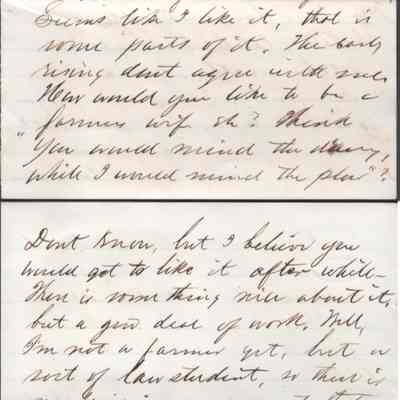 Seems like I like it, that is
some parts of it. The early
rising dont agree with me.
How would you like to be a
farmers wife eh? Think
"You would mind the dairy,
while I would mind the plow"?
Dont know, but I believe you
would got to like it after while—
There is something nice about it,
but a good deal of work. Well,
I'm not a farmer yet, but a
sort of law student, so there is